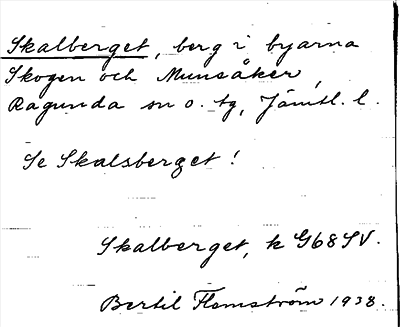 Skalberget, berg i byarna
Skogen och Munsåker,
Ragunda sn o. tg, Jämtl. l.
Se Skalsberget!
Skalberget, k G68SV.
Bertil Flemström 1938.